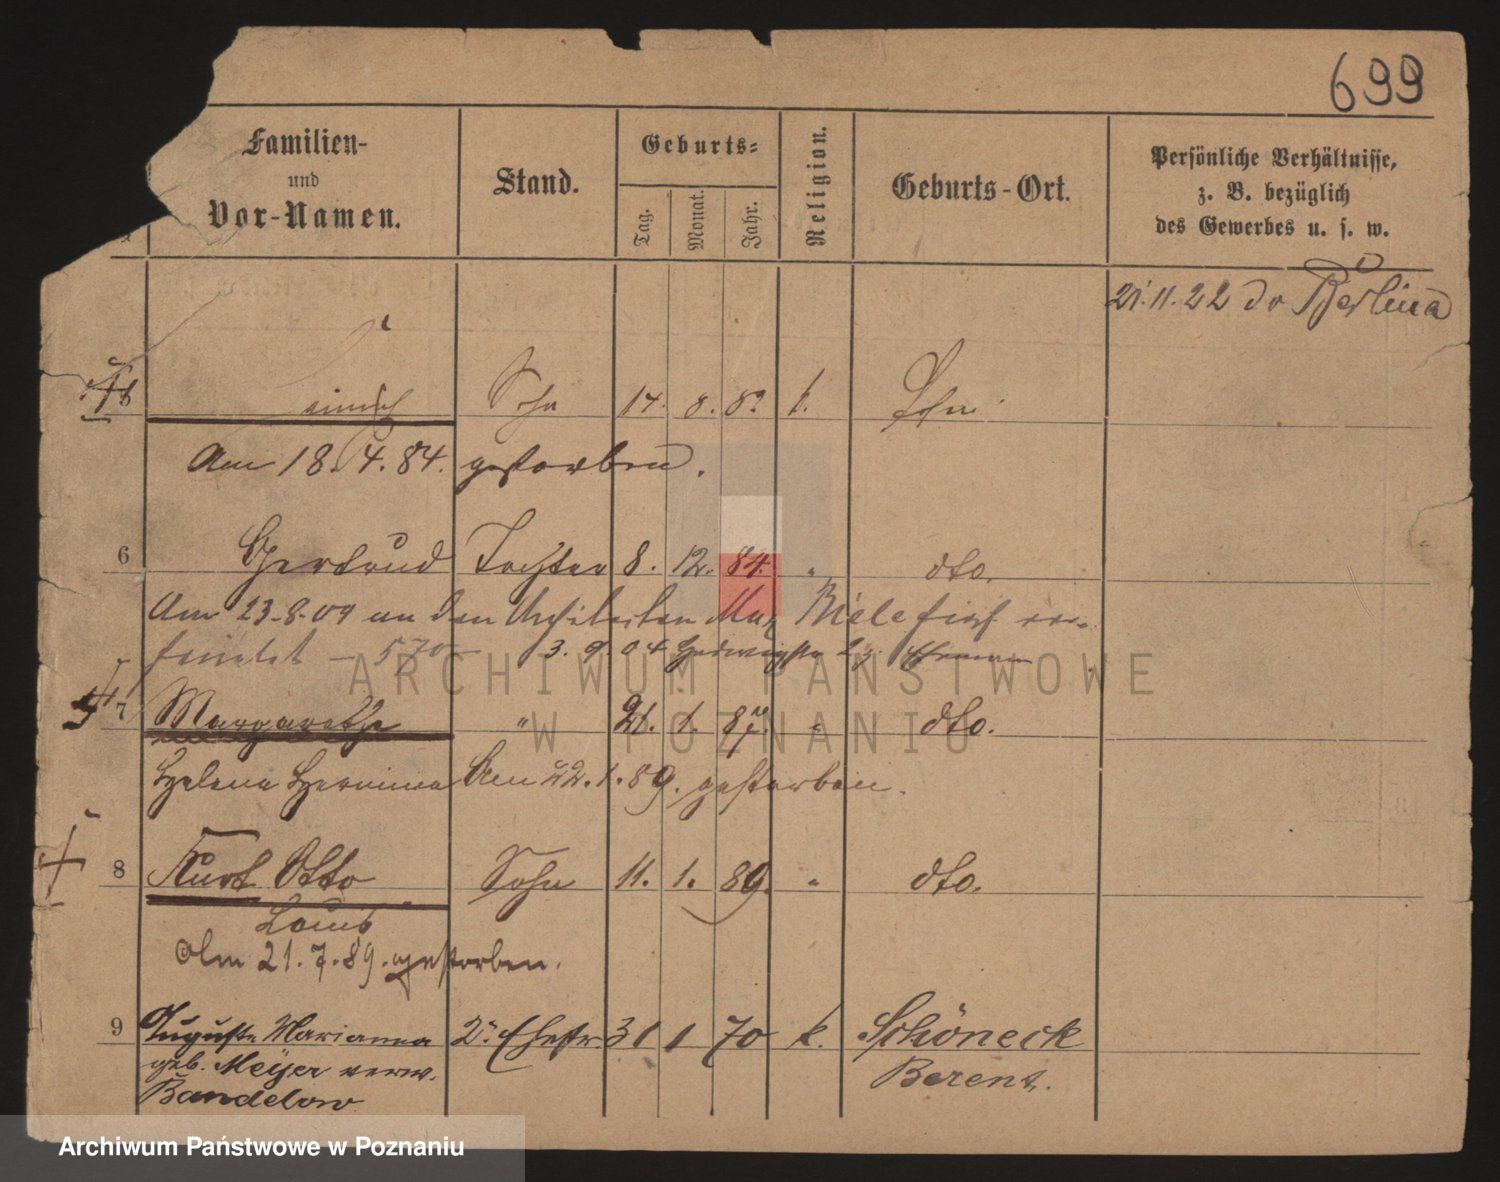 699
Familien-
und
Vor-Namen.
Stand.
Geburts-
Tag.
Monat.
Jahr.
Religion.
Geburts-Ort.
Persönliche Verhältnisse,
z. B. bezüglich
des Gewerbes u. s. w.
21.11.22 do Berlina
Sohn 14. 8. 82 k.
Am 18.4.84. gestorben.
6 Gertrud Tochter 8. 12. 84. " dto.
Am 23.8.04 an den Architekten Max
3.9.04
7 Margarethe " 21. 1. 87. " dto.
Helene Hermine Am 22.1.89. gestorben.
8 Kurt Otto Sohn 11. 1. 89. " dto.
Louis
Am 21.7.89. gestorben.
9 Auguste Marianna 2. Ehefr. 31 1 70 k. Schöneck
geb. Meÿer verw. Berent.
Bandelow
ARCHIWUM PAŃSTWOWE
W POZNANIU
Archiwum Państwowe w Poznaniu